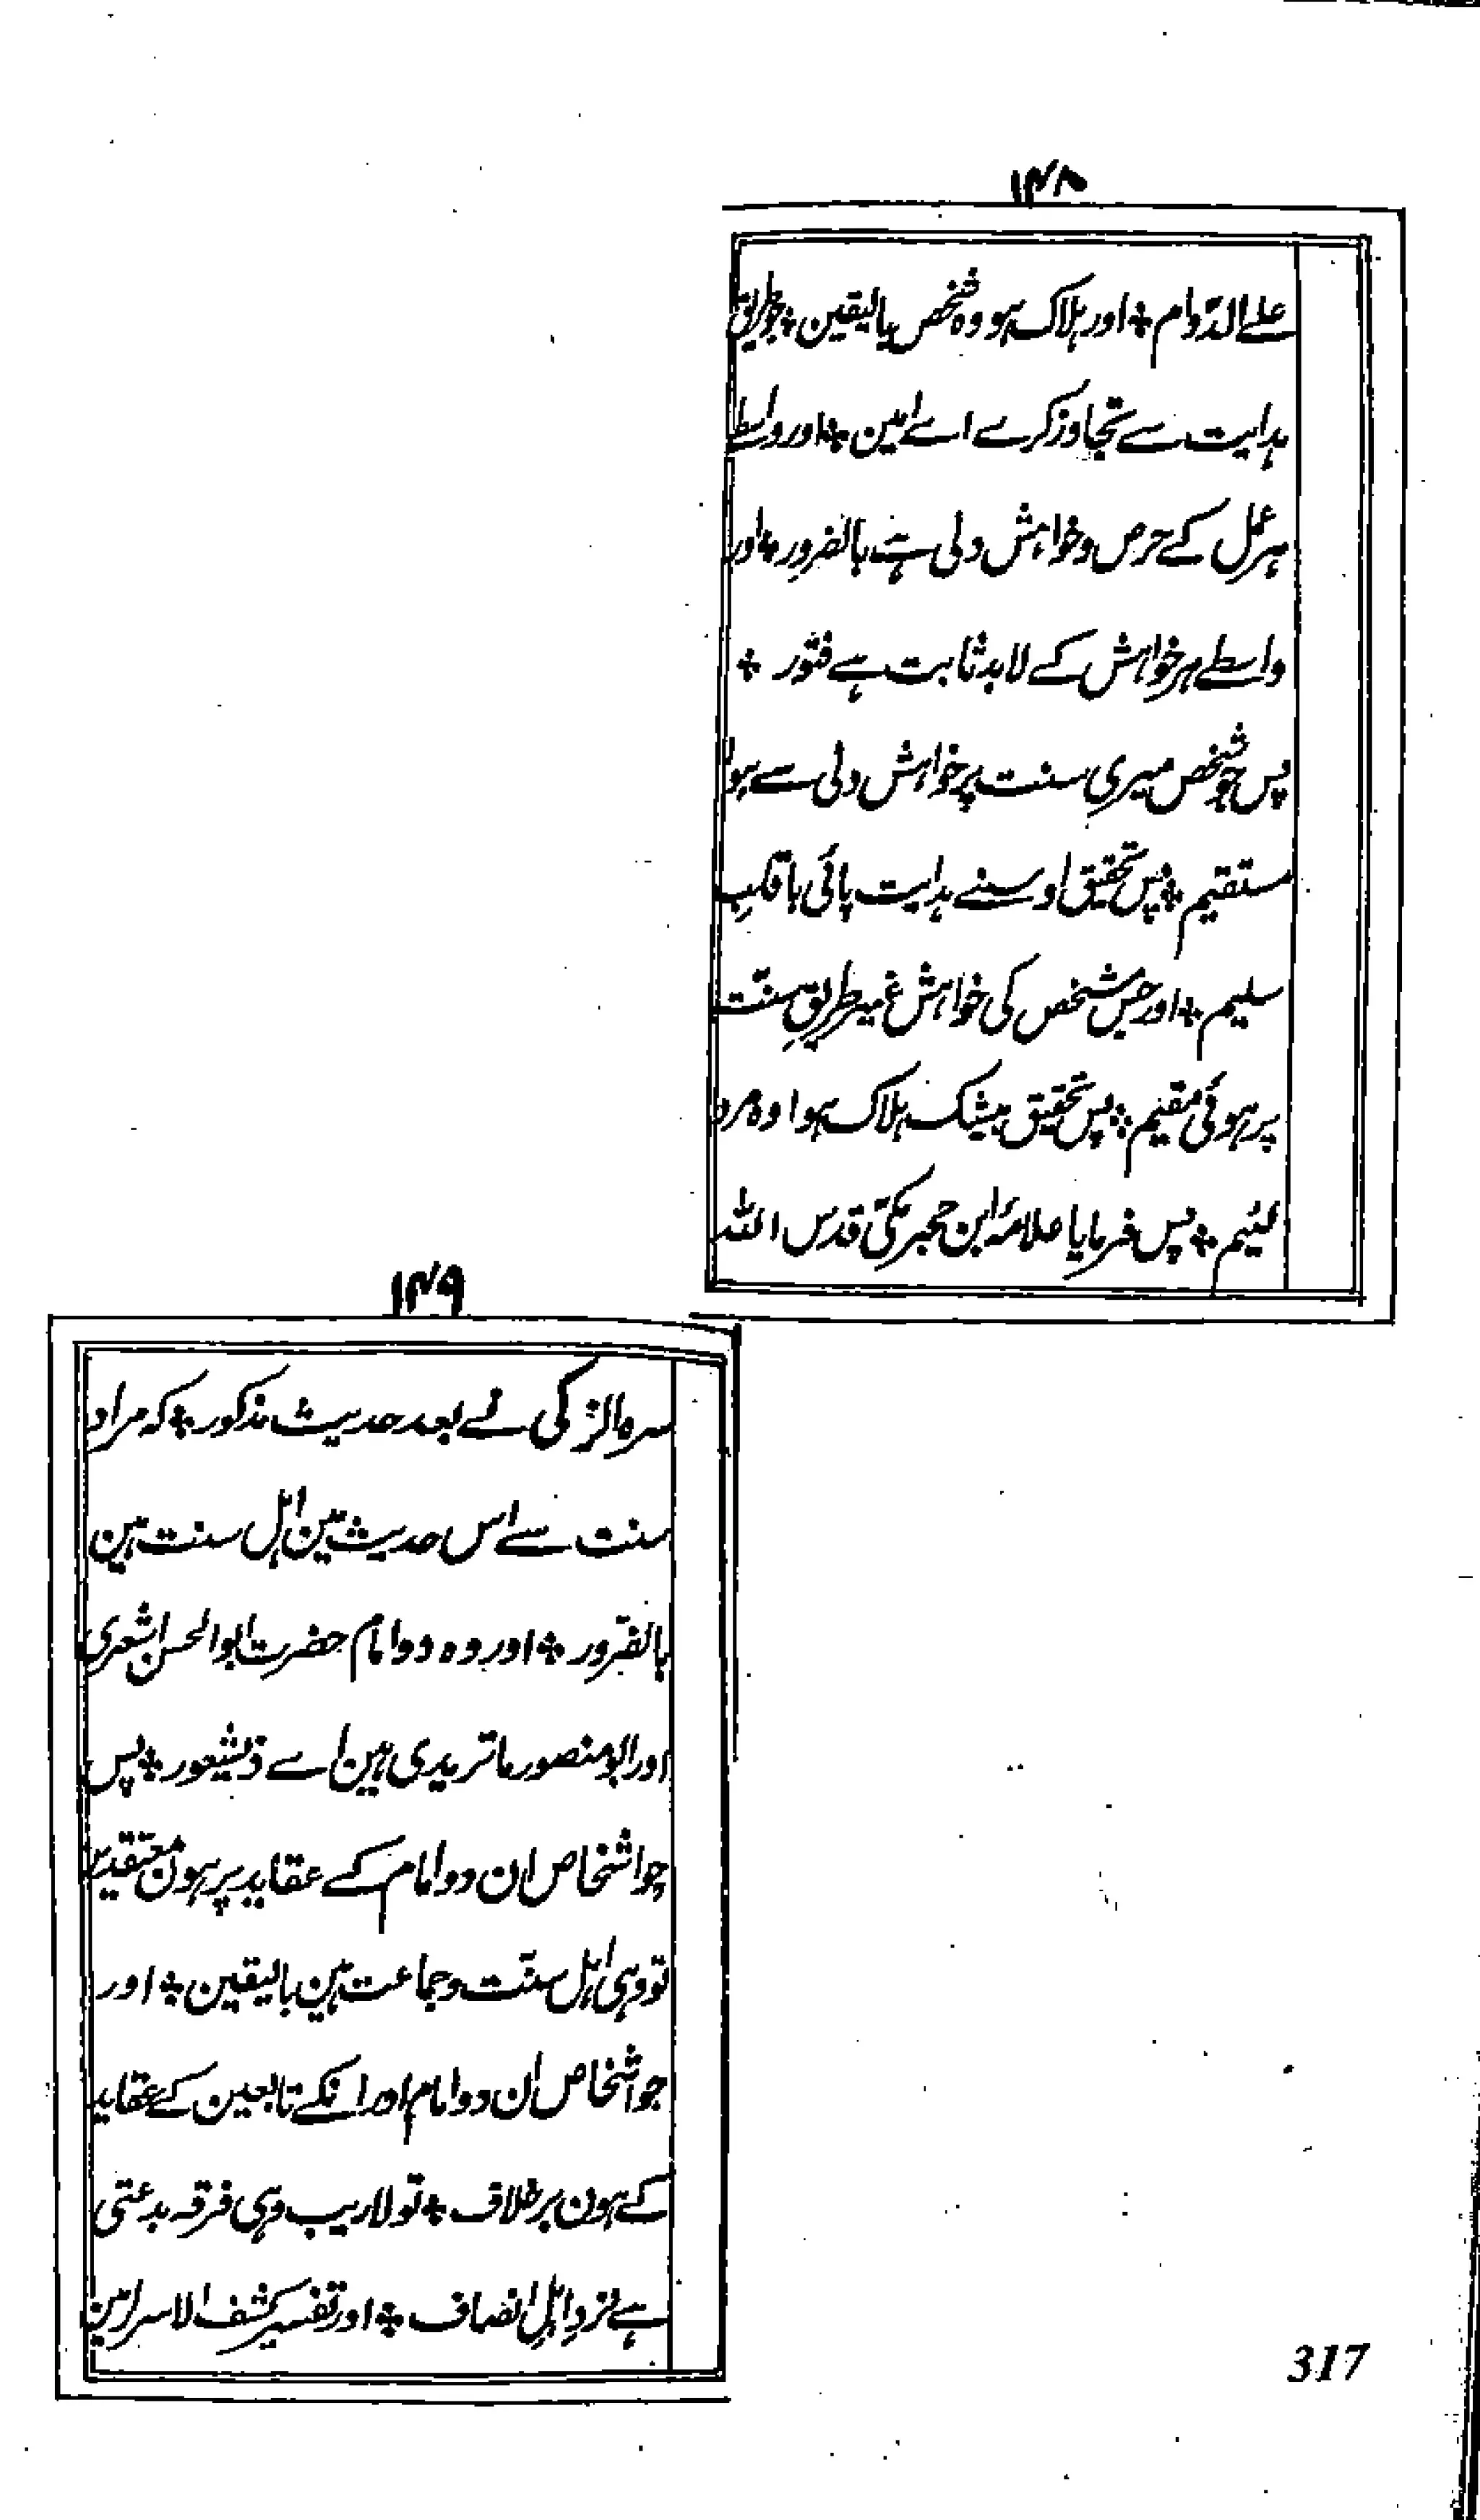 ۱۴۸
علے الدّوام ؞ اور ہلاک ہو وہ شخص بالیقین ؞ جو طریق
ہدایت سے تجاوز کرے اے امین ؞ اور واسطے
ہر عمل کے حرص و خواہش دلی ہے بالضرور ؞ اور
واسطے ہر خواہش کے لابد ثابت ہے فتور ؞
پس جو شخص میری سنت پر خواہش دلی سے ہوا
مستقیم ؞ پس تحقیق اوسنے ہدایت پائی باقلبِ
سلیم ؞ اور جس شخص کی خواہش غیر طریقِ سنّت
پر ہوئی مقیم ؞ پس تحقیق بیشک ہلاک ہوا وہ مرد
لئیم ؞ پس فرمایا علامۂ ابن حجر مکّی قدس اللہ
۱۴۹
سرہ الزکی نے بعد حدیث مذکور ؞ کہ مراد
سنت سے اس حدیث مین اہل سنت ہین
بالضرور ؞ اور وہ دو امام حضرت ابو الحسن اشعری
اور ابو منصور ماتریدی ہین اے ذیشعور ؞ پس
جو اشخاص ان دو امام کے عقاید پر ہون معتقدین
تو وہی اہل سنّت و جماعت ہین بالیقین ؞ اور
جو اشخاص ان دو امام اور انکے تابعین کے عقاید
کے ہون برخلاف ؞ تو لاریب وہی فرقہ بدعتی
ہے نزدِ اہلِ انصاف ؞ اور تفسیر کشف الاسرار مین
317